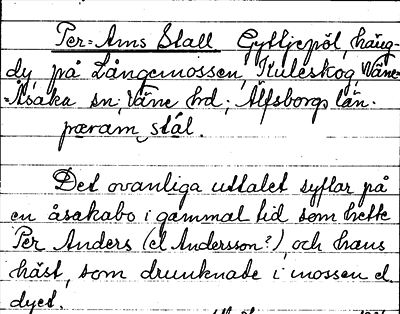 Per-Ams Stall Gyttjepöl, häng-
dy, på Långemossen, Kuleskog Väne-
-Åsaka sn; Väne hrd; Älfsborgs län.
pæram, stál.
Det ovanliga uttalet syftar på
en åsakabo i gammal tid som hette
Per Anders (el Andersson?), och hans
häst, som drunknade i mossen el.
dyet.